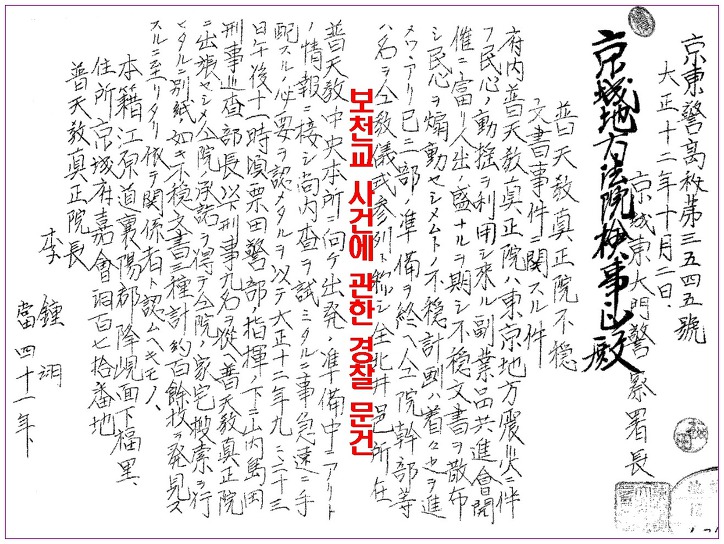 京東警高秘第三五四五號
大正十二年十月二日
京城東大門警察署長
京城地方法院檢事正殿
普天敎眞正院不穩
文書事件ニ關スル件
府内普天敎眞正院ハ東京地方震災ニ伴
フ民心ノ動搖ヲ利用シ來ル副業品共進會開
催ニ當リ人出盛ナルヲ期シ不穩文書ヲ散布
シ民心ヲ煽動セシメムトノ不穩計劃ハ着々歩ヲ進
メツヽアリ已ニ一部ノ準備ヲ終ヘ仝院幹部等
ハ名ヲ仝敎儀式參列ト稱シ全北井邑所在
보천교 사건에 관한 경찰 문건
普天敎中央本所ニ向ケ出発ノ準備中ニアリト
ノ情報ニ接シ尚内査ヲ試ミタルニ事急速ニ手
配スルノ必要ヲ認メタルヲ以テ大正十二年九、三十
日午後十一時頃栗田警部ノ指揮ノ下ニ山内島田
刑事巡査部長以下刑事九名ヲ從ヘ普天敎眞正院
ニ出張セシメ仝院ノ承諾ヲ得テ仝院ノ家宅搜索ヲ行
ヒタルニ別紙如キ不穩文書三種計約百餘枚ヲ発見ス
スルニ至リタリ依テ關係者ト認ムヘキモノ、
本籍江原道襄陽郡降峴面下福里、
住所京城府嘉會洞百七拾番地
普天敎眞正院長
李鍾翊
當四十一年